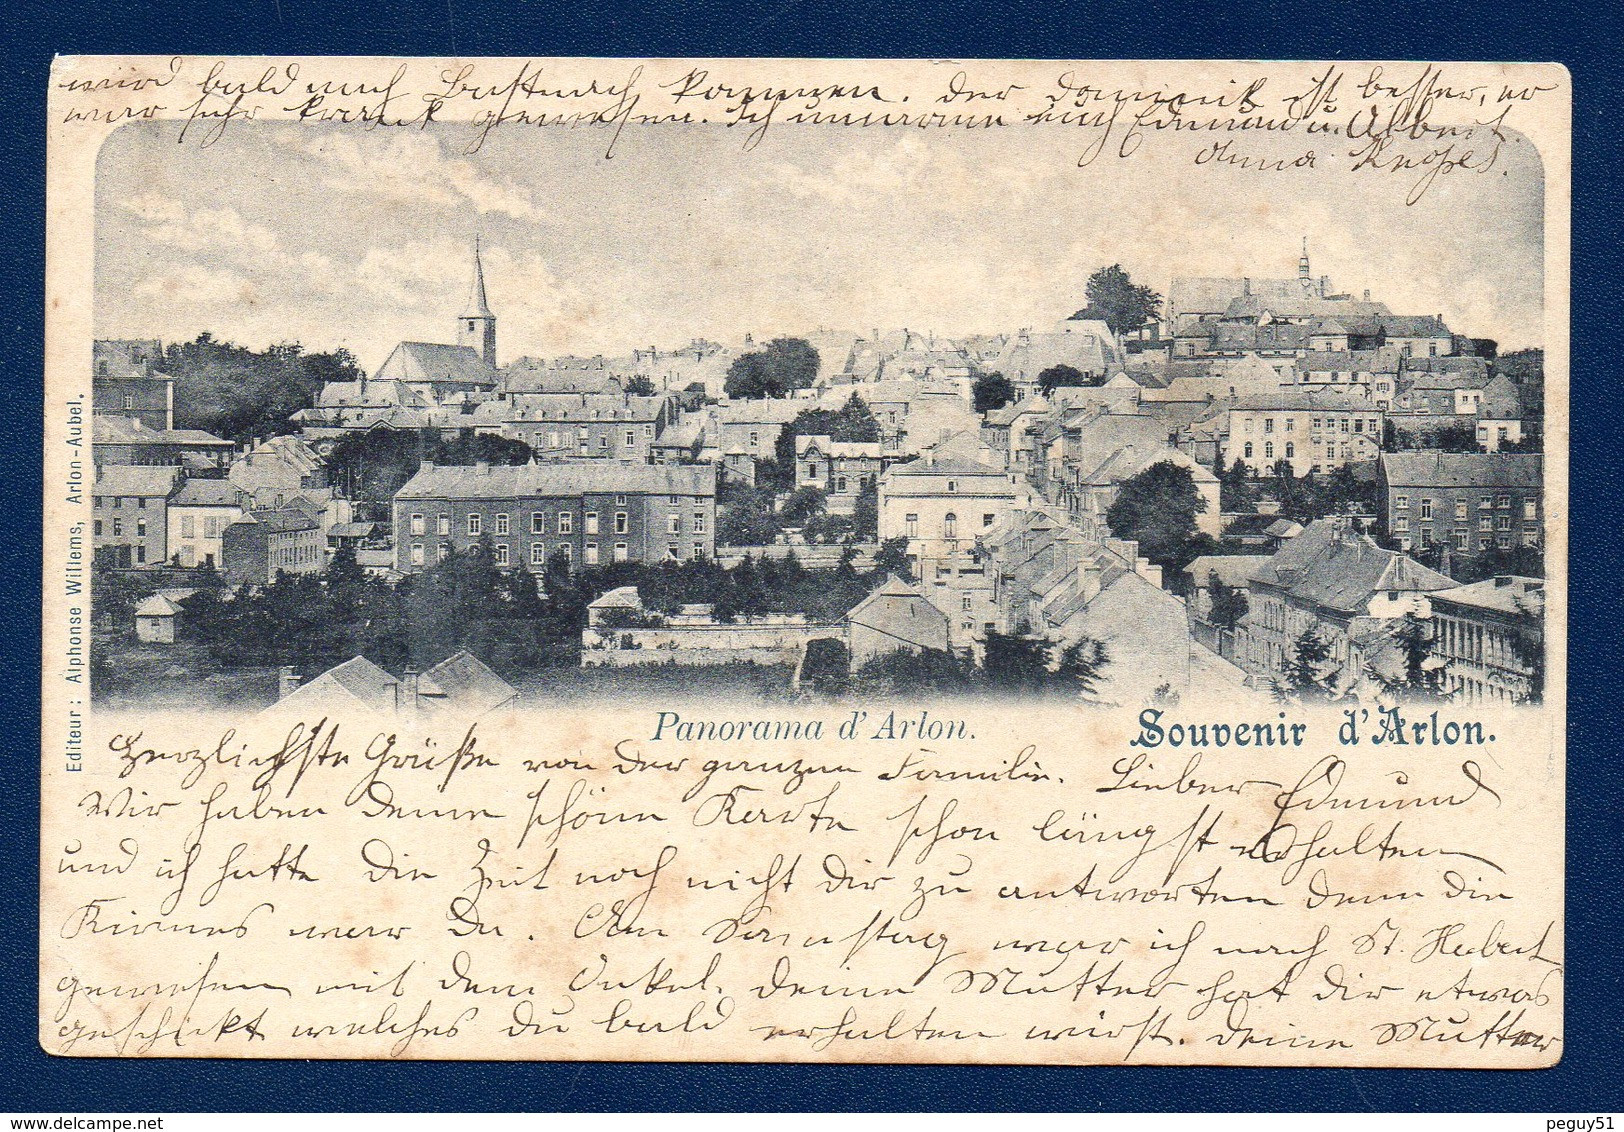 wird bald nach Bastnach kommen. Der Dominik ist besser, er
war sehr krank gewesen. Ich umarme euch Edmund u. Albert.
Anna
Editeur: Alphonse Willems, Arlon-Aubel.
Panorama d'Arlon.
Souvenir d'Arlon.
Herzlichste Grüße von der ganzen Familie. Lieber Edmund
Wir haben deine schöne Karte schon längst erhalten
und ich hatte die Zeit noch nicht dir zu antworten denn die
Kirmes war da. Am Samstag war ich nach St. Hubert
gewesen mit dem Onkel. Deine Mutter hat dir etwas
geschickt welches du bald erhalten wirst. Deine Mutter
peguy51